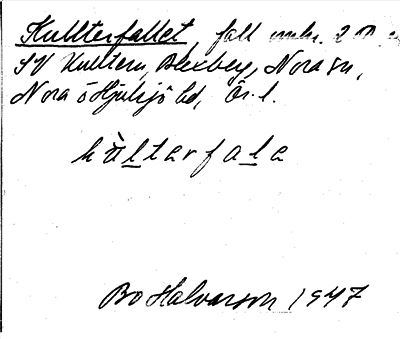 Kullterfallet, fall
SV Kulltern, Blexberg, Nora sn,
Nora o Hjulsjö bd, Ör. l.
kùlterfale
Bo Halvarson 1947